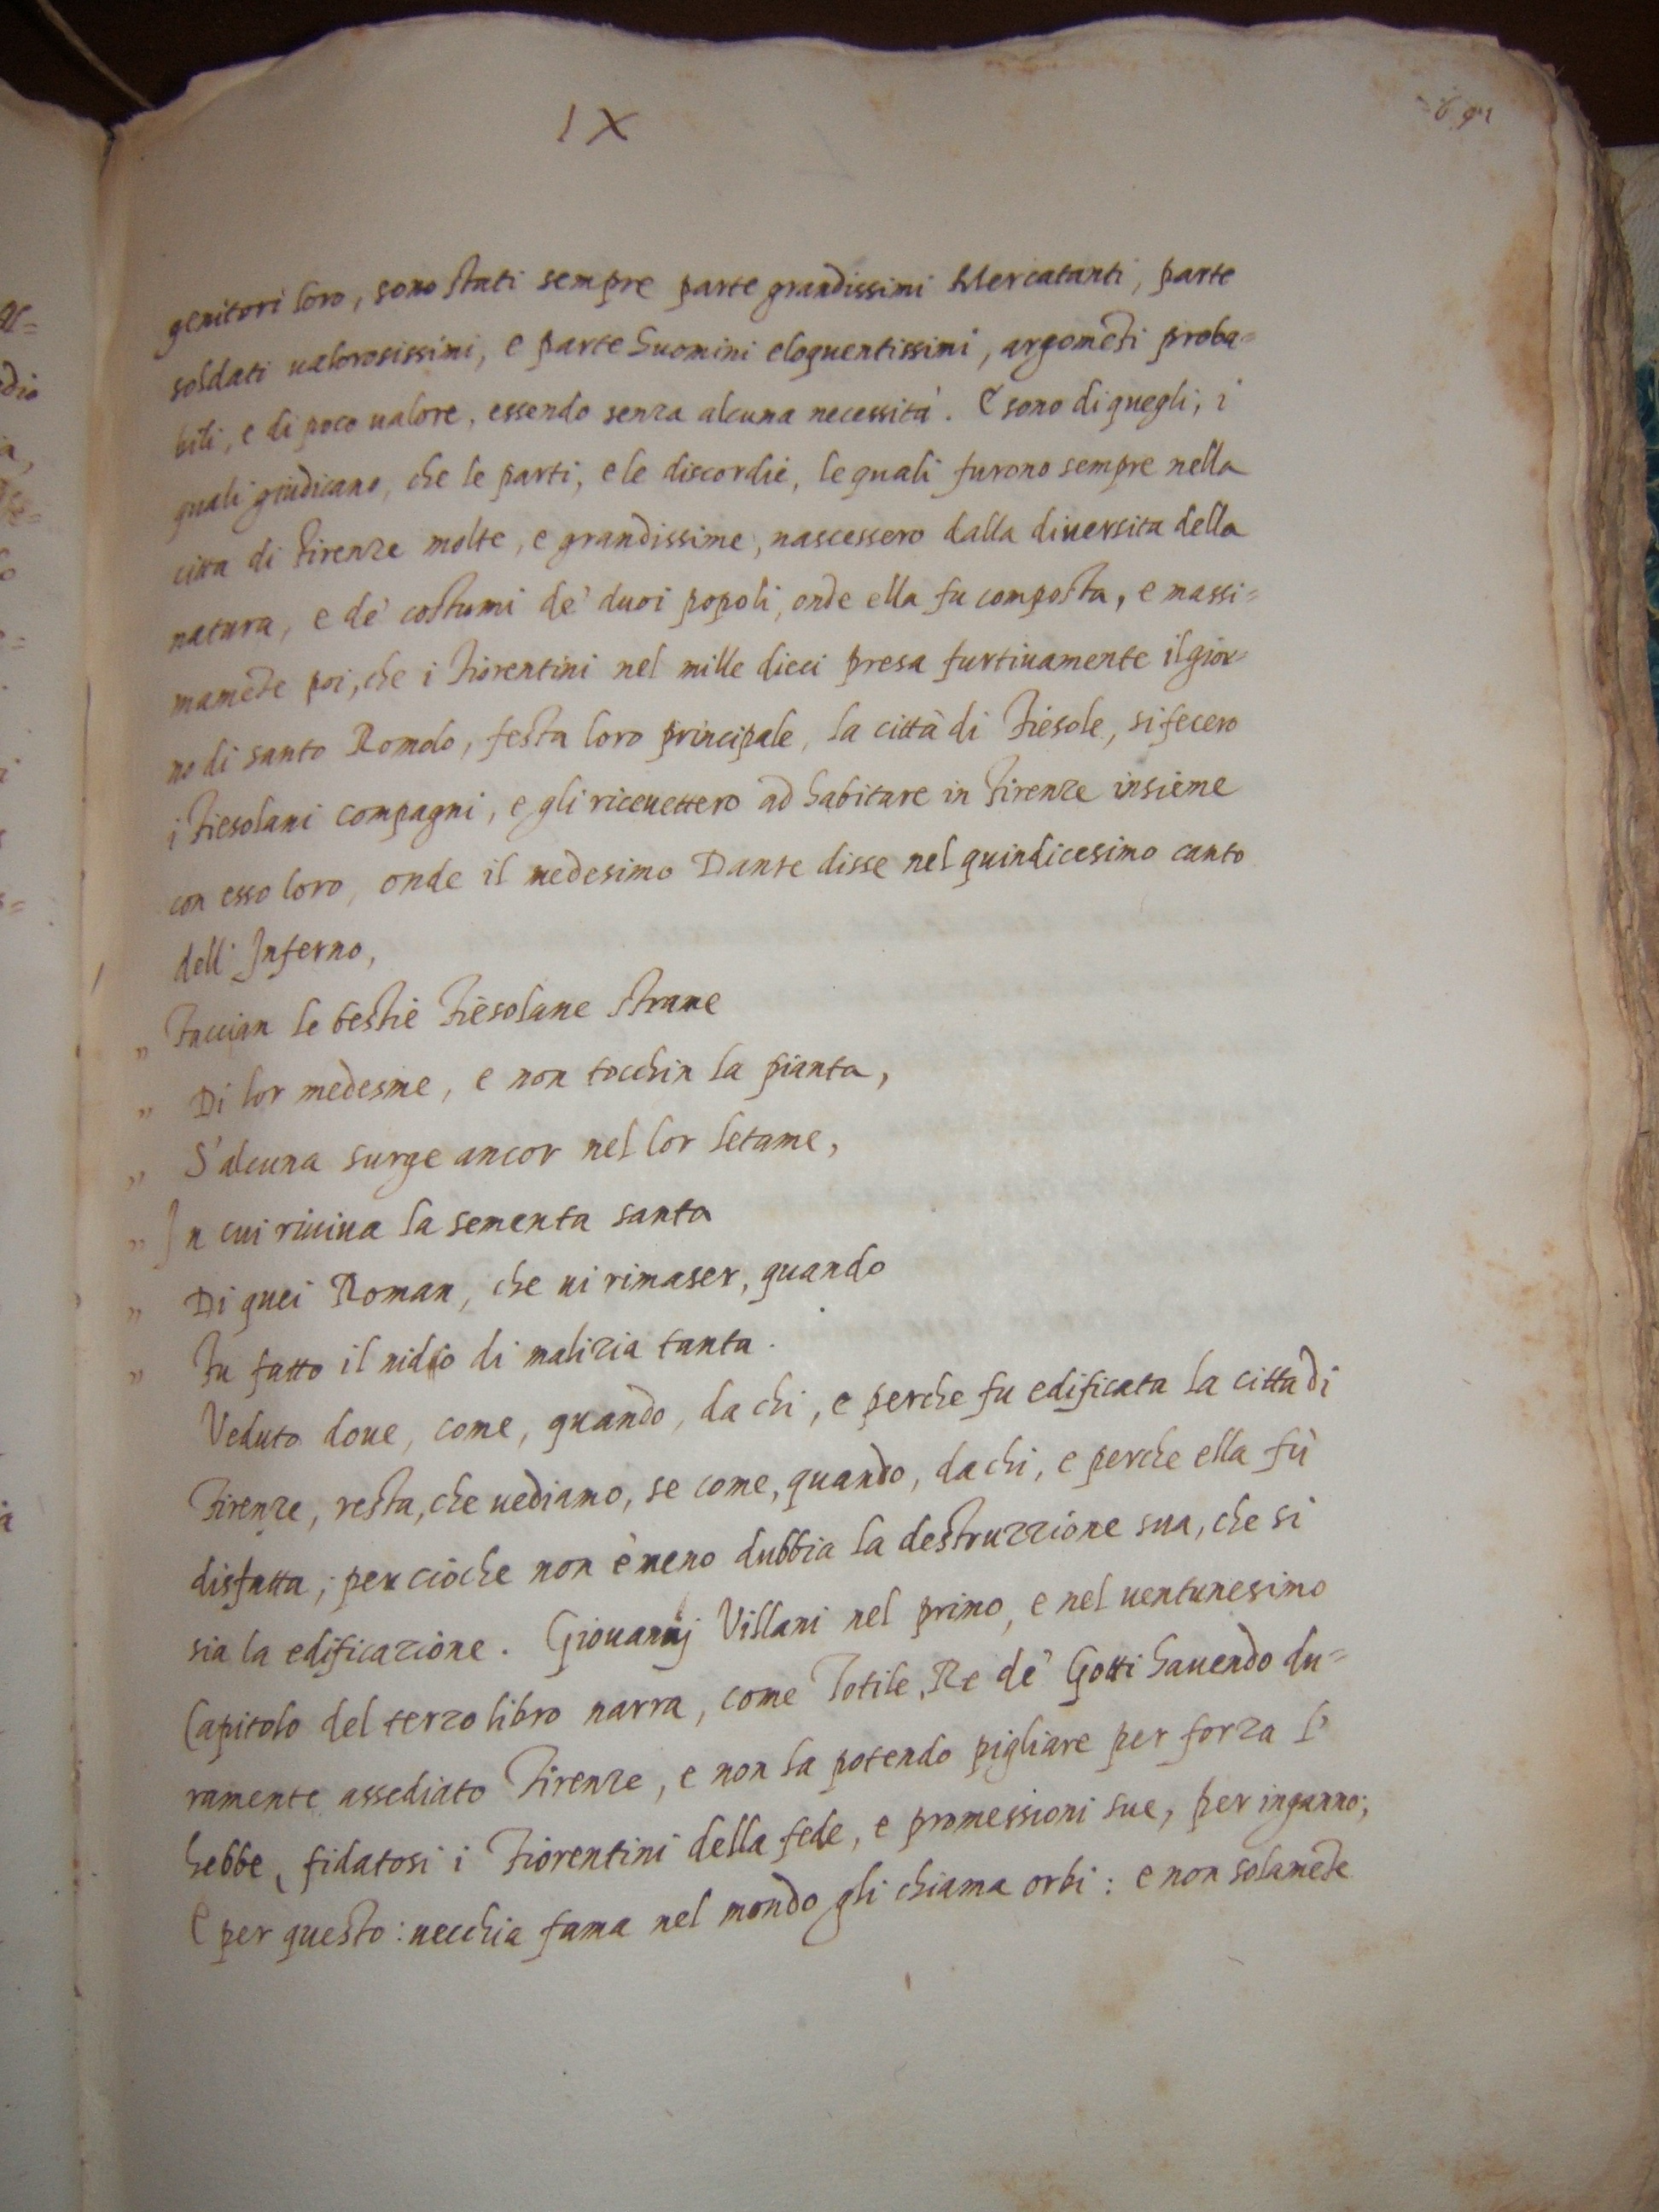 IX
genitori loro, sono stati sempre parte grandissimi Mercatanti, parte
soldati ualorosissimi, e parte huomini eloquentissimi, argomẽti proba=
bili, e di poco ualore, essendo senza alcuna necessità. E sono di quegli, i
quali giudicano, che le parti, e le discordie, le quali furono sempre nella
citta di Firenze molte, e grandissime, nascessero dalla diuersita della
natura, e de' costumi de' duoi popoli, onde ella fu composta, e massi=
mamẽte poi, che i Fiorentini nel mille dieci presa furtiuamente il gior=
no di santo Romolo, festa loro principale, la città di Fiesole, si fecero
i Fiesolani compagni, e gli riceuettero ad habitare in Firenze insieme
con esso loro, onde il medesimo Dante disse nel quindicesimo canto
dell'Inferno,
„ Faccian le bestie Fiesolane strame
„ Di lor medesme, e non tocchin la pianta,
„ S'alcuna surge ancor nel lor letame,
„ In cui riuiua la sementa santa
„ Di quei Roman, che ui rimaser, quando
„ Fu fatto il nidio di malizia tanta.
Veduto doue, come, quando, da chi, e perche fu edificata la citta di
Firenze, resta, che uediamo, se come, quando, da chi, e perche ella fù
disfatta; percioche non è meno dubbia la destruzzione sua, che si
sia la edificazione. Giouannj Villani nel primo, e nel uentunesimo
Capitolo del terzo libro narra, come Totile, Re de' Gotti hauendo du=
ramente assediato Firenze, e non la potendo pigliare per forza l'
hebbe, fidatosi i Fiorentini della fede, e promessioni sue, per inganno;
E per questo: uecchia fama nel mondo gli chiama orbi: e non solamẽte